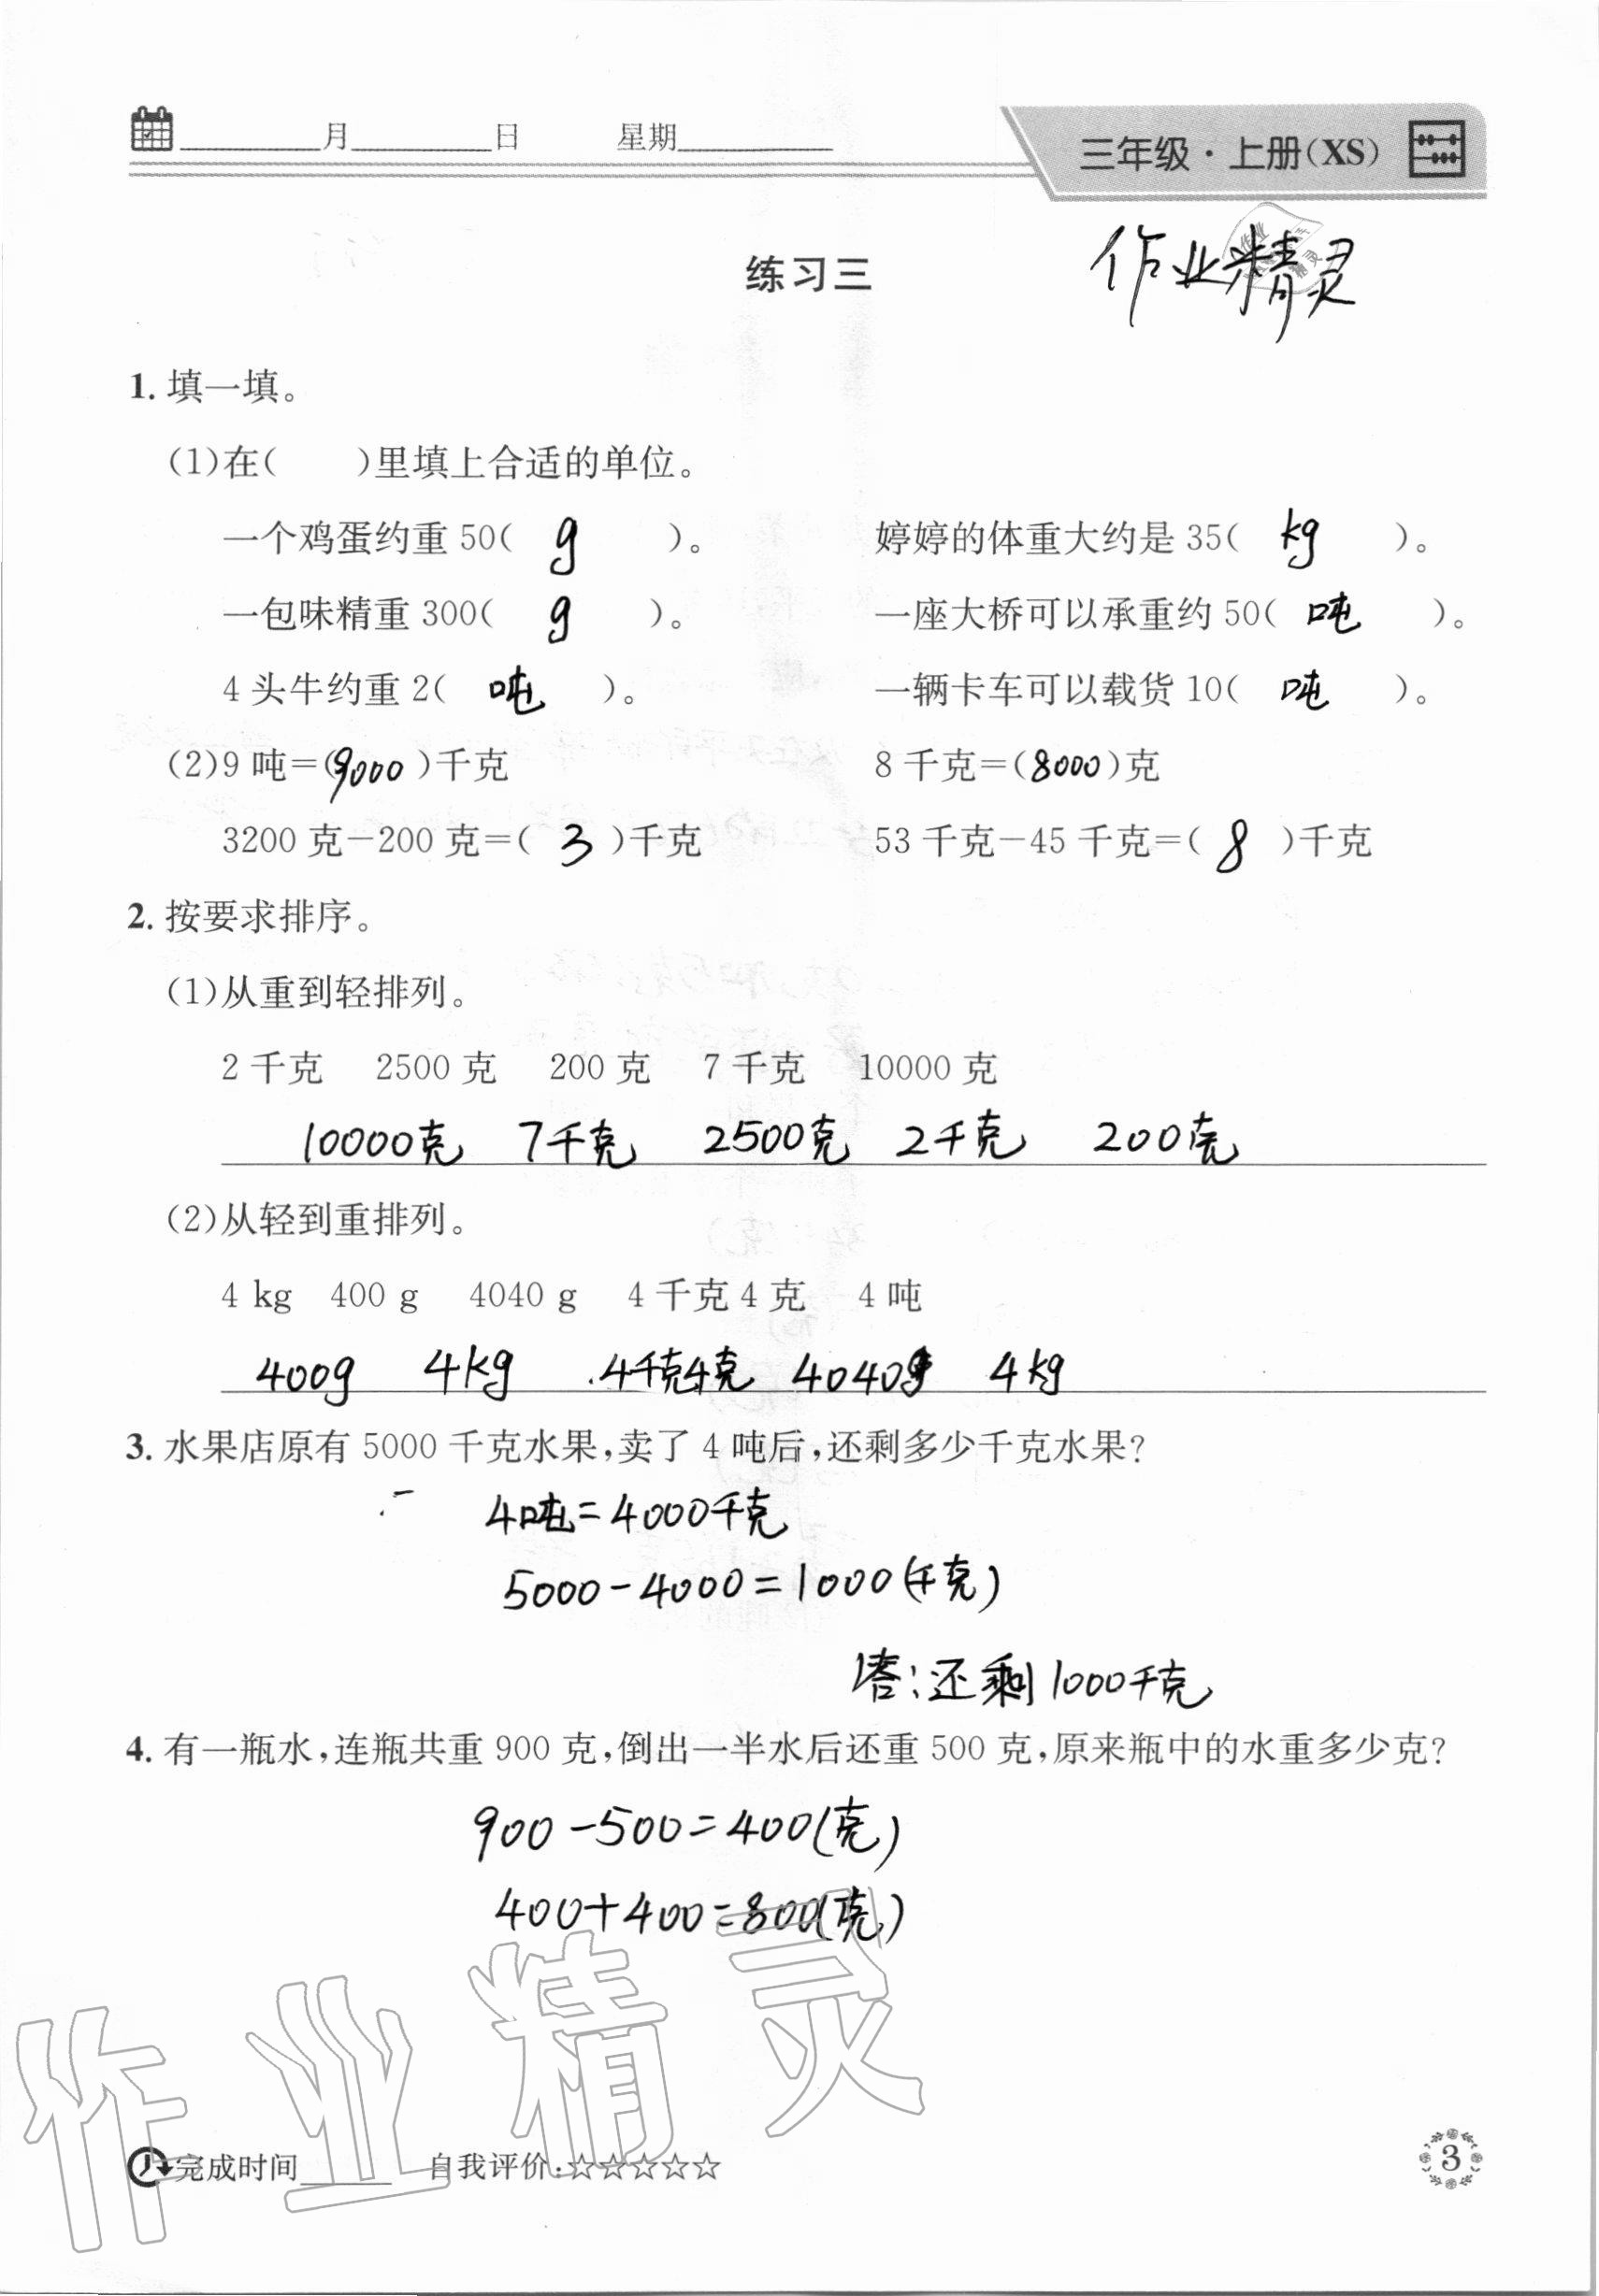 ____月____日 星期____
三年级·上册(XS)
作业精灵
练习三
1. 填一填。
(1)在( )里填上合适的单位。
一个鸡蛋约重 50( g )。 婷婷的体重大约是 35( kg )。
一包味精重 300( g )。 一座大桥可以承重约 50( 吨 )。
4 头牛约重 2( 吨 )。 一辆卡车可以载货 10( 吨 )。
(2)9 吨=(9000)千克 8 千克=(8000)克
3200 克-200 克=( 3 )千克 53 千克-45 千克=( 8 )千克
2. 按要求排序。
(1)从重到轻排列。
2 千克 2500 克 200 克 7 千克 10000 克
10000克 7千克 2500克 2千克 200克
(2)从轻到重排列。
4 kg 400 g 4040 g 4 千克 4 克 4 吨
400g 4kg 4千克4克 4040g 4kg
3. 水果店原有 5000 千克水果,卖了 4 吨后,还剩多少千克水果?
4吨=4000千克
5000-4000=1000(千克)
答:还剩1000千克
4. 有一瓶水,连瓶共重 900 克,倒出一半水后还重 500 克,原来瓶中的水重多少克?
900-500=400(克)
400+400=800(克)
作业精灵
完成时间____ 自我评价:☆☆☆☆☆
3